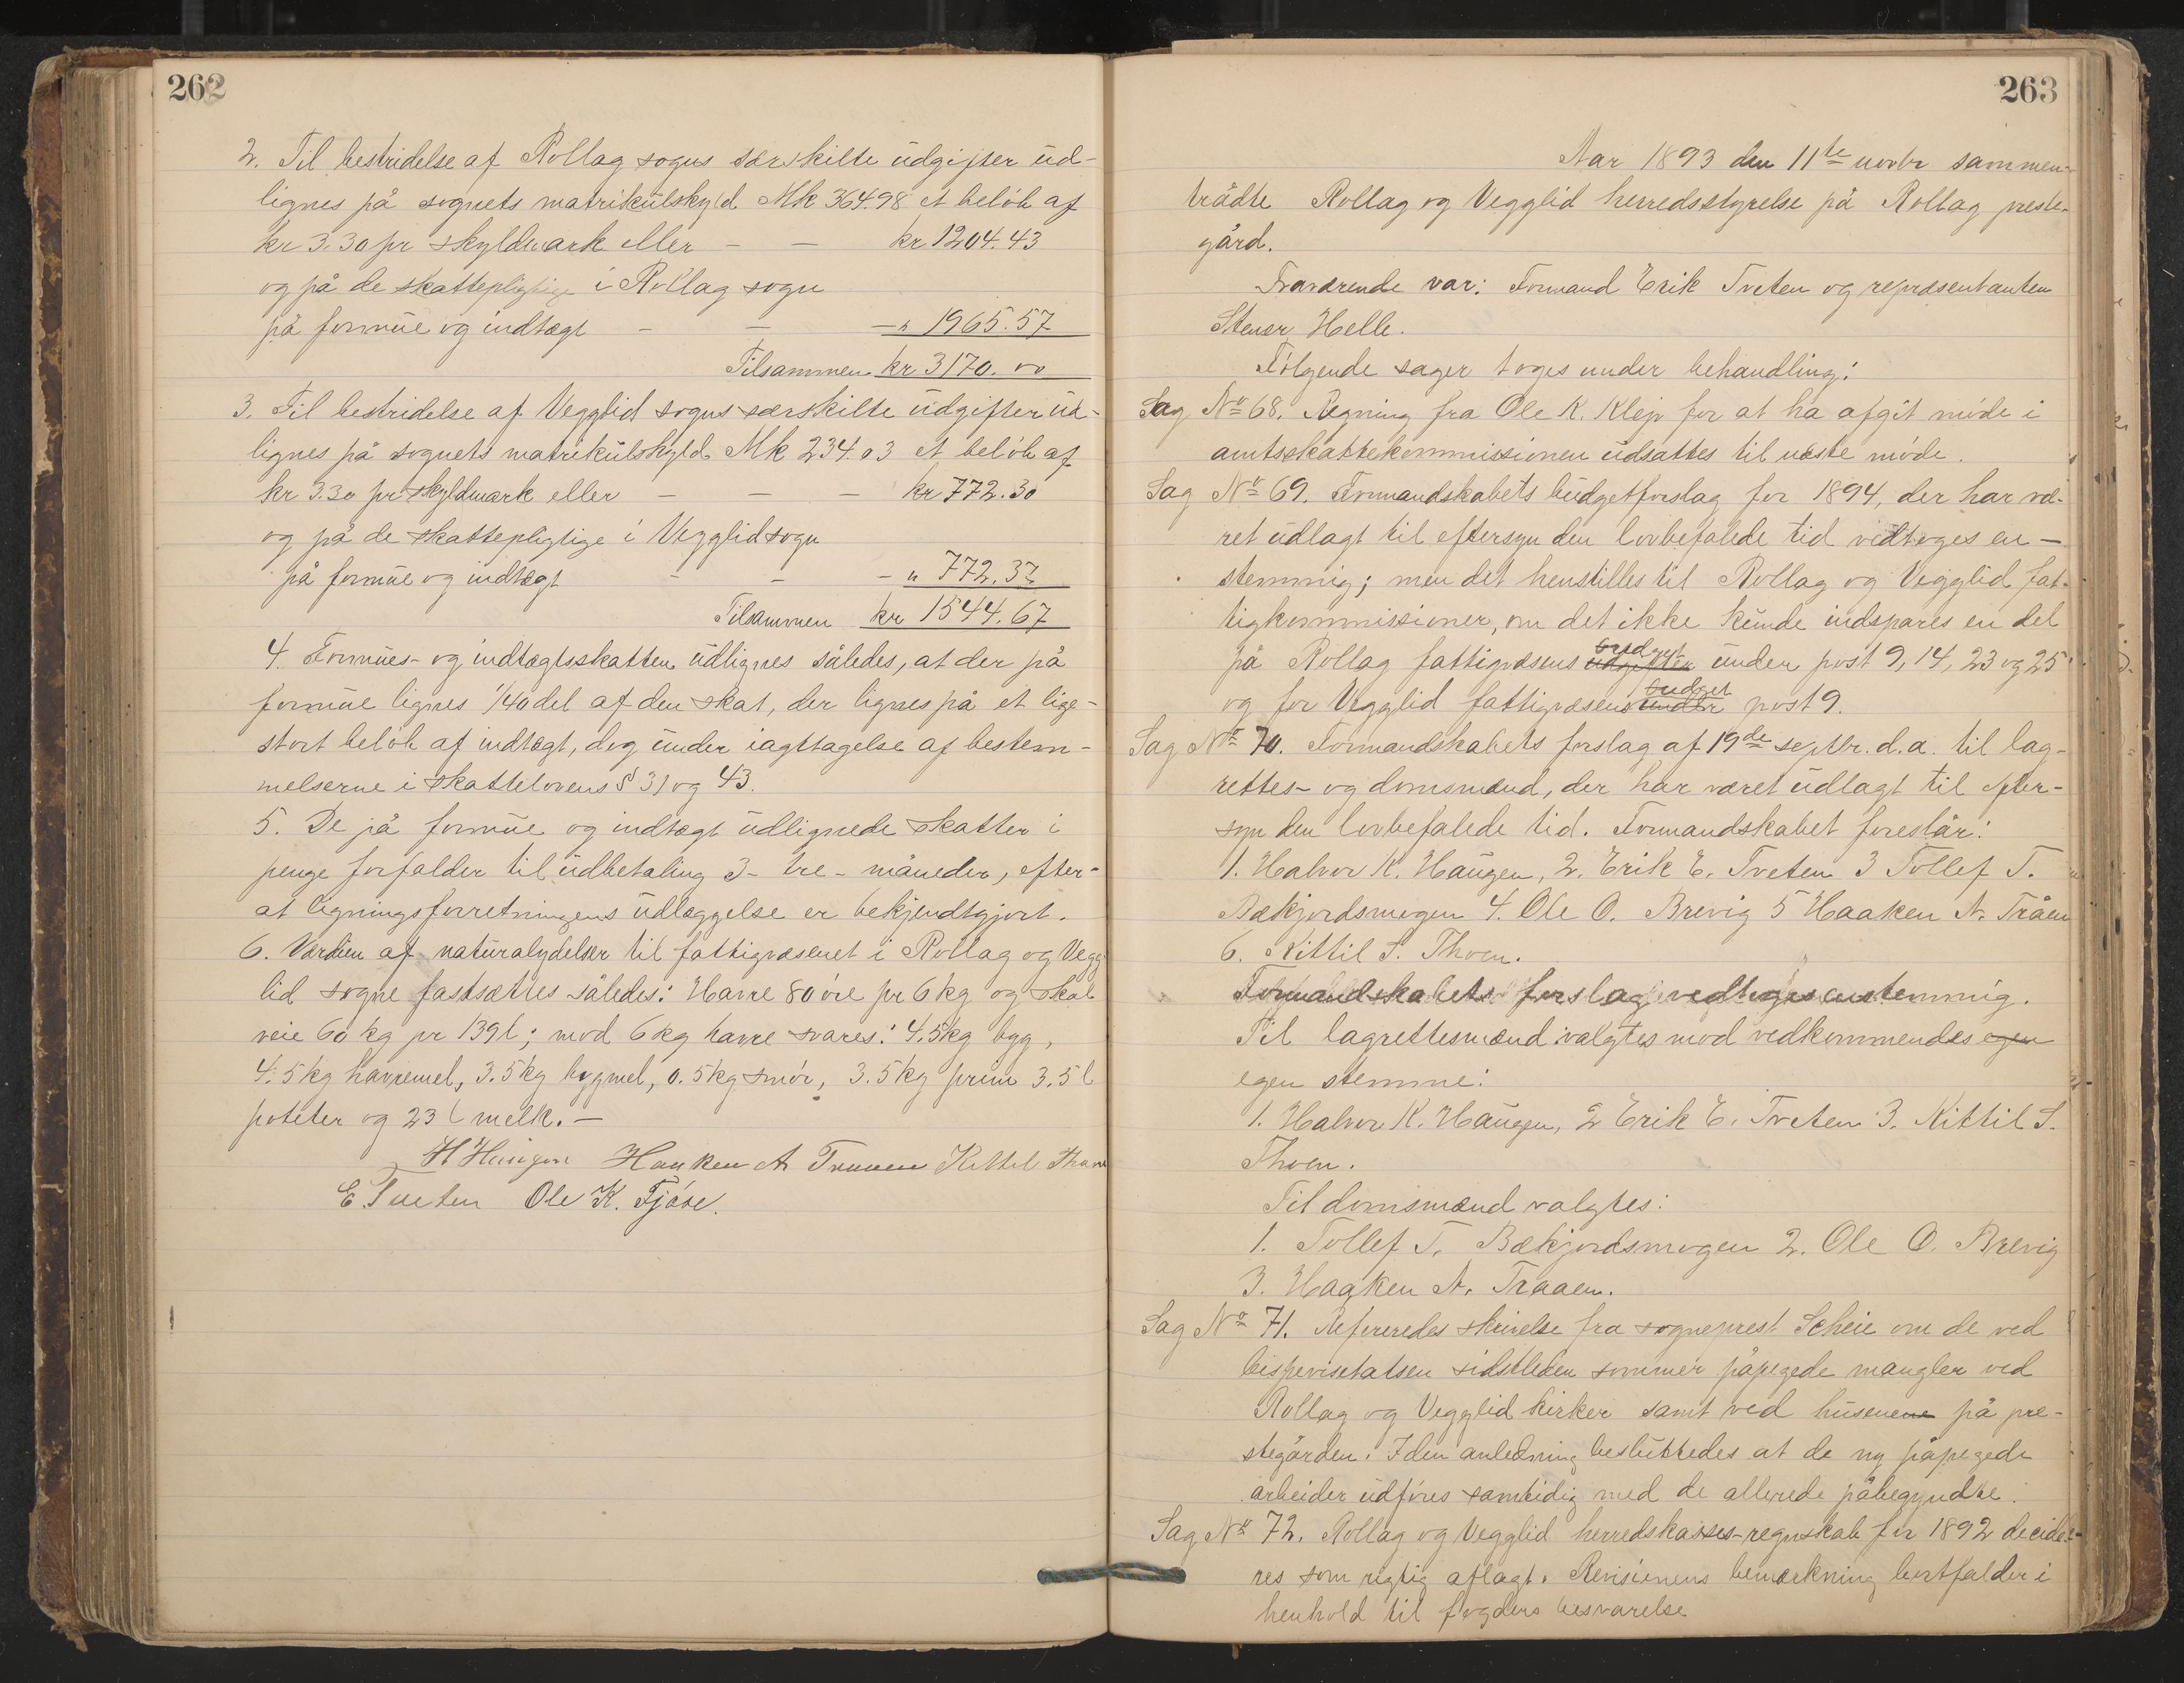 262
2. Til bestridelse af Rollag sogns særskilte udgifter ud-
lignes på sognets matrikulskyld Mk 364.98 et beløb af
kr 3.30 pr skyldmark eller - - kr 1204.43
og på de skattepligtige i Rollag sogn
på formue og indtægt - - - " 1965.57
Tilsammen kr 3170.00
3. Til bestridelse af Vegglid sogns særskilte udgifter ud-
lignes på sognets matrikulskyld Mk 234.03 et beløb af
kr 3.30 pr skyldmark eller - - - kr 772.30
og på de skattepligtige i Vegglid sogn
på formue og indtægt - - - " 772.37
Tilsammen kr 1544.67
4. Formues- og indtægtsskatten udlignes således, at der på
formue lignes 1/40 del af den skat, der lignes på et lige-
stort beløb af indtægt, dog under iagttagelse af bestem-
melserne i skattelovens § 31 og 43.
5. De på formue og indtægt udlignede skatter i
penge forfalder til udbetaling 3- tre - måneder, efter-
at ligningsforretningens udlæggelse er bekjendtgjort.
6. Værdien af naturalydelser til fattigvæsenet i Rollag og Vegg
lid sogne fastsættes således: Havre 80 øre pr 6 kg og skal
veie 60 kg pr 139 l; mod 6 kg havre svares: 4.5 kg byg,
4.5 kg havremel, 3.5 kg bygmel, 0.5 kg smør, 3.5 kg prim 3.5 l
poteter og 23 l melk. -
H Haugen Haaken A Traaen Kittel Thoen
E. Tveten Ole K. Fjøse.
263
Aar 1893 den 11te novbr sammen-
trådte Rollag og Vegglid herredsstyrelse på Rollag preste-
gård.
Fraværende var: Formand Erik Tveten og repræsentanten
Stener Helle.
Følgende sager toges under behandling:
Sag No 68. Regning fra Ole K. Klev for at ha afgit møde i
amtsskattekommissionen udsattes til næste møde.
Sag No 69. Formandskabets budgetforslag for 1894, der har væ-
ret udlagt til eftersyn den lovbefalede tid vedtoges en-
stemmig; men det henstilles til Rollag og Vegglid fat-
tigkommissioner, om det ikke kunde indspares en del
på Rollag fattigvæsens udgifter budget under post 9, 14, 23 og 25
og for Vegglid fattigvæsens under budget post 9.
Sag No 70. Formandskabets forslag af 19de septbr. d.a. til lag-
rettes- og domsmænd, der har været udlagt til efter-
syn den lovbefalede tid. Formandskabet foreslår:
1. Halvor K. Haugen, 2. Erik E. Tveten 3 Tollef T.
Bækjordsmogen 4. Ole O. Brevig 5 Haaken A. Tråen
6. Kittil S. Thoen.
Formandskabets forslag vedtoges enstemmig.
Til lagrettesmænd valgtes mod vedkommendes egen
egen stemme:
1. Halvor K. Haugen, 2 Erik E. Tveten 3. Kittil S.
Thoen.
Til domsmænd valgtes:
1. Tollef T. Bækjordsmogen 2. Ole O. Brevig
3. Haaken A. Traaen.
Sag No 71. Refereredes skrivelse fra sogneprest Scheie om de ved
bispevisetatsen sidstleden sommer påpegede mangler ved
Rollag og Vegglid kirker samt ved husenene på pre-
stegården. I den anledning besluttedes at de ny påpegede
arbeider udføres samtidig med de allerede påbegyndte.
Sag No 72. Rollag og Vegglid herredskasses-regnskab for 1892 decide-
res som rigtig aflagt. Revisionens bemærkning bortfalder i
henhold til fogdens besvarelse